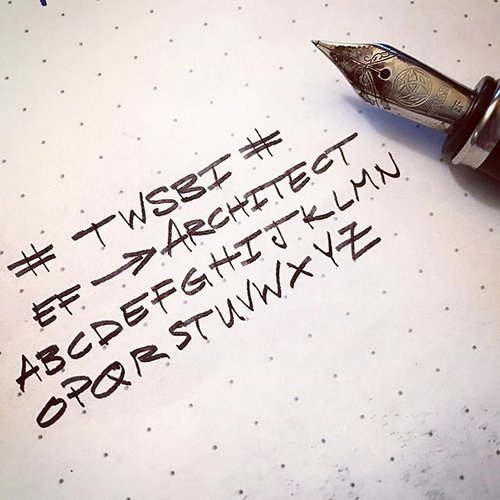 # TWSBI #
EF → ARCHITECT
ABCDEFGHIJKLMN
OPQRSTUVWXYZ